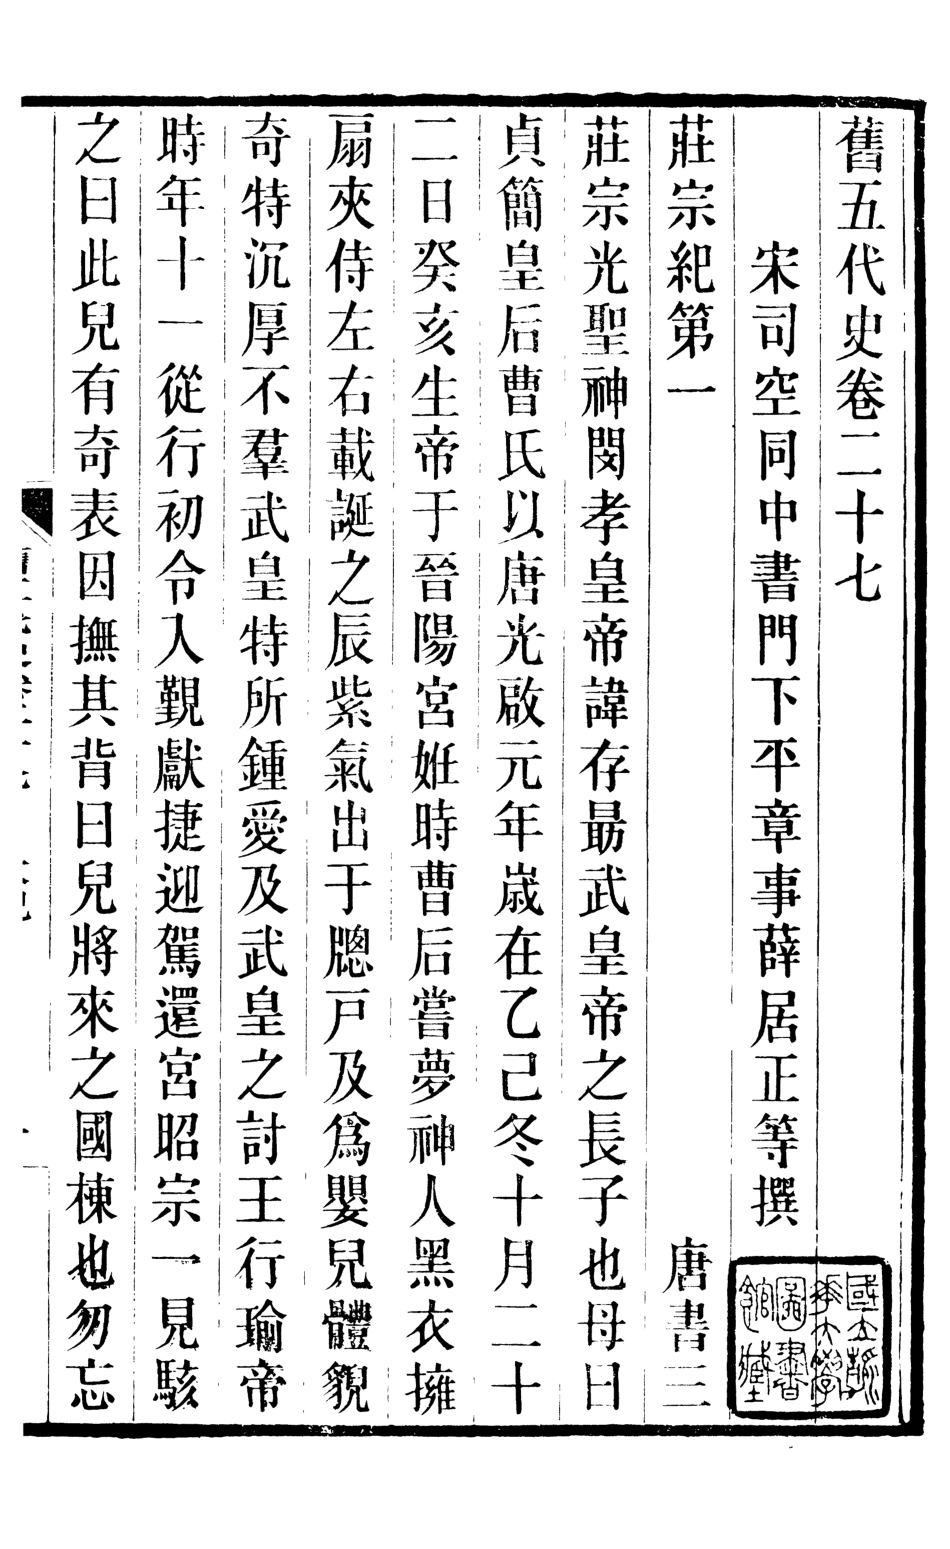 舊五代史卷二十七
宋司空同中書門下平章事薛居正等撰
莊宗紀第一 唐書三
莊宗光聖神閔孝皇帝諱存勗武皇帝之長子也母曰
貞簡皇后曹氏以唐光啟元年歲在乙巳冬十月二十
二日癸亥生帝于晉陽宮姙時曹后嘗夢神人黑衣擁
扇夾侍左右載誕之辰紫氣出于牕戸及爲嬰兒體貌
奇特沉厚不羣武皇特所鍾愛及武皇之討王行瑜帝
時年十一從行初令入覲獻捷迎駕還宮昭宗一見駭
之曰此兒有奇表因撫其背曰兒將來之國棟也勿忘